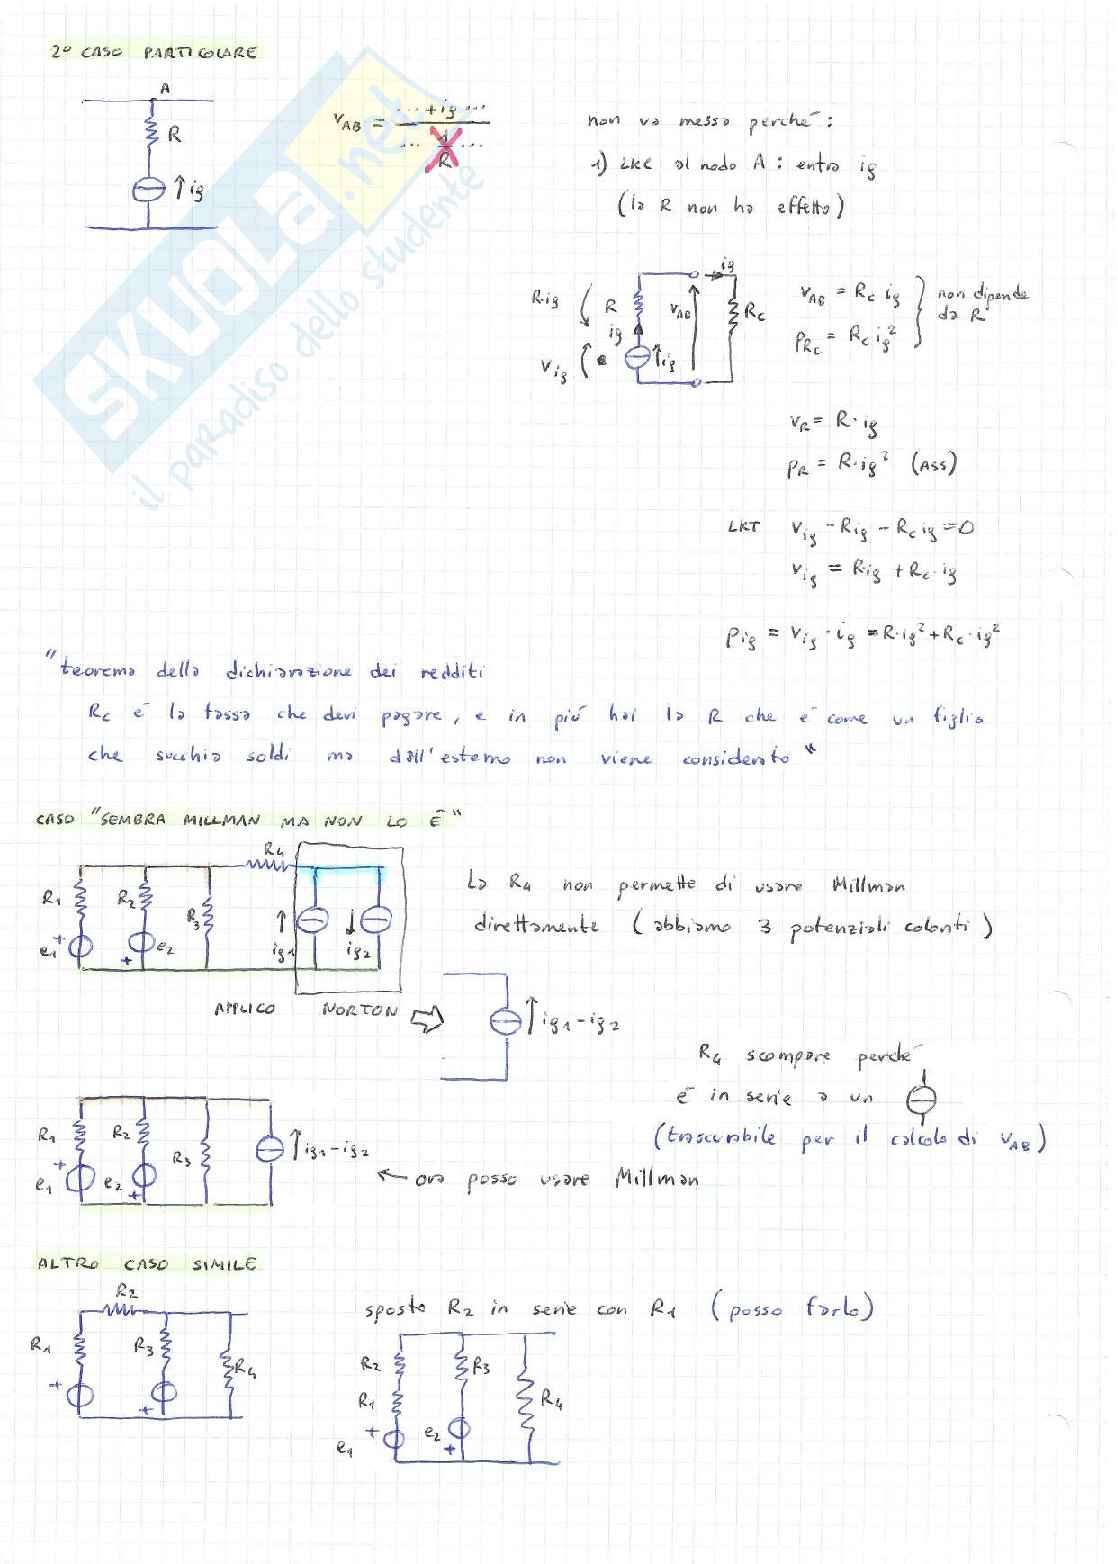 2° CASO PARTICOLARE
A
R
ig
vAB = ... + ig ... / ... 1/R ...
non va messa perché:
1) LKC al nodo A : entra ig
(la R non ha effetto)
R·ig
R
ig
vig
ig
vAB
ig
Rc
vAB = Rc ig
pRc = Rc ig²
non dipende
da R
vR = R·ig
pR = R·ig² (ASS)
LKT vig - Rig - Rc ig = 0
vig = Rig + Rc·ig
pig = vig·ig = R·ig² + Rc·ig²
"teorema della dichiarazione dei redditi
Rc è la tassa che devi pagare, e in più hai la R che è come un figlio
che succhia soldi ma dall'esterno non viene considerato"
CASO "SEMBRA MILLMAN MA NON LO È"
R4
R1
R2
R3
e1
+
e2
+
ig1
ig2
La R4 non permette di usare Millman
direttamente (abbiamo 3 potenziali colonti)
APPLICO NORTON
ig1 - ig2
R4 scompare perché
è in serie a un
(trascurabile per il calcolo di vAB)
R1
R2
R3
+
e1
e2
+
ig1 - ig2
ora posso usare Millman
ALTRO CASO SIMILE
R2
R1
R3
R4
+
+
sposto R2 in serie con R1 (posso farlo)
R2
R3
R1
R4
+
e1
e2
+
SKUOLA.net
il paradiso dello studente